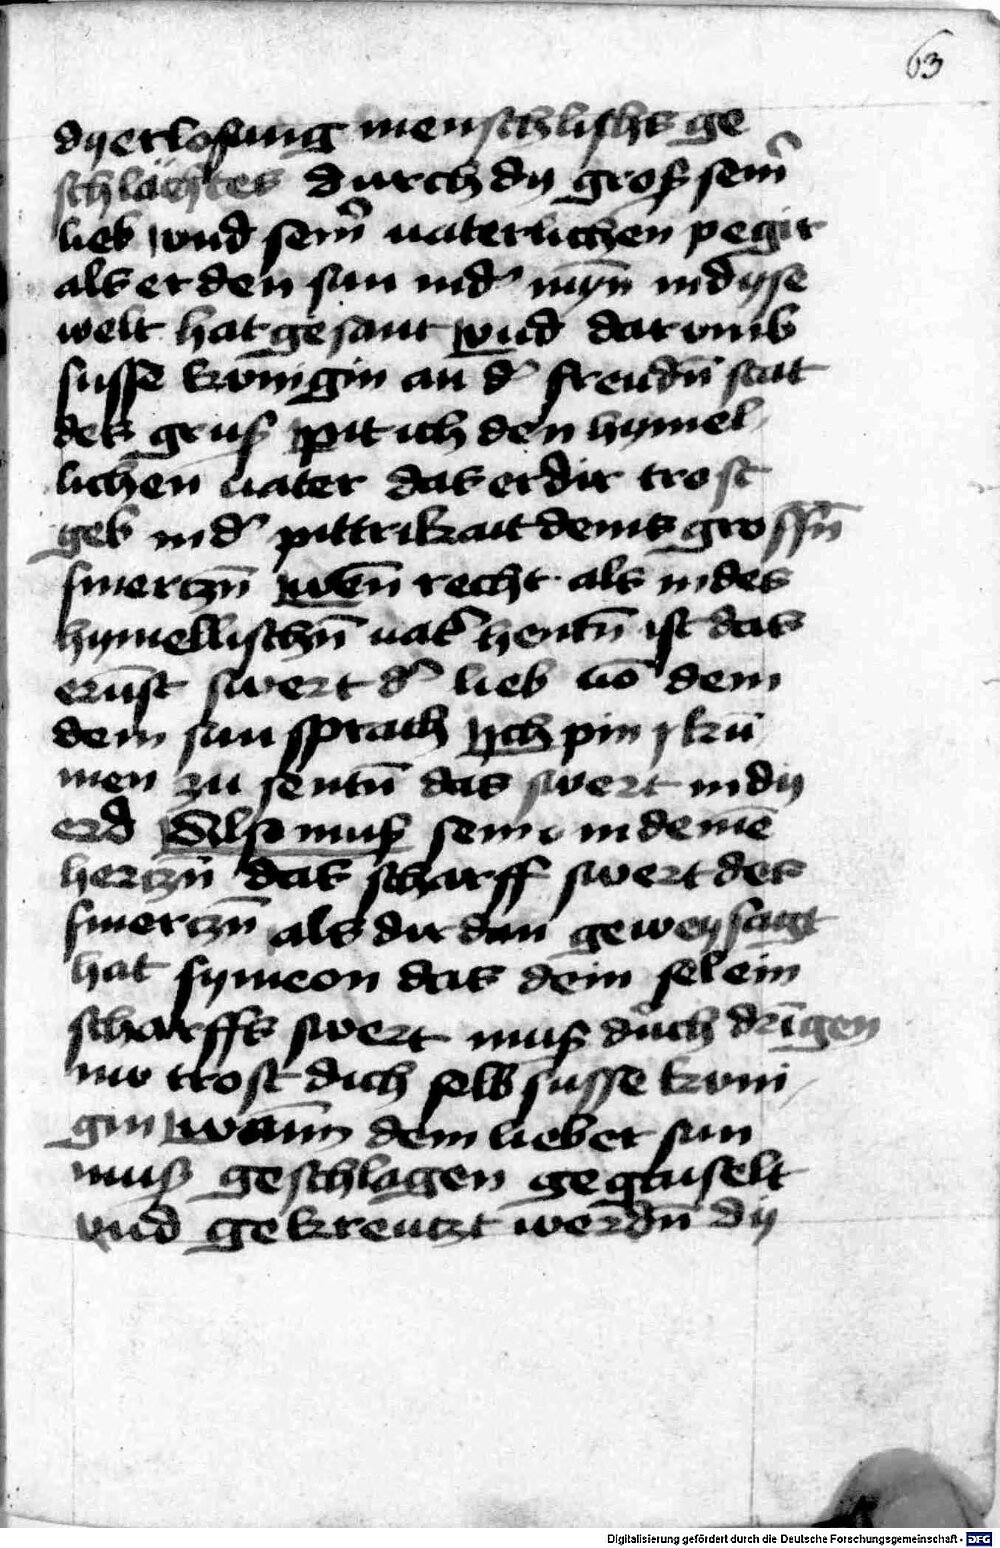 63
dy erlosung menschlichs ge
schlachtes durch dy groß sein̾
lieb vnd sein̾ uaterlichen pegir
als er den sun in d̾ myn̄ in dyse
welt hat gesant vnd dar vmb
susse konigin an d̾ freudn̄ stat
des gruß pit ich den hymel
lichen uater das er dir trost
geb in d̾ pittrikait deins grossn̄
smerczn̄ wen̄ recht als in des
hymellischn̄ uat̾ hentn̄ ist das
ernst swert d̾ lieb uō dem
dem sun sprach Ich pin kū
men zu sentn̄ das swert in dy
erd Also muß sein in deinē
herczn̄ das scharff swert des
smerczn̄ als dir dan geweysagt
hat symeon das dein sel ein
scharffs swert muß durch dringen
nw trost dich selb susse koni
gin wann̄ dein lieber sun
muß geschlagen gegaiselt
vnd gekreutzt werdn̄ dy
Digitalisierung gefördert durch die Deutsche Forschungsgemeinschaft - DFG